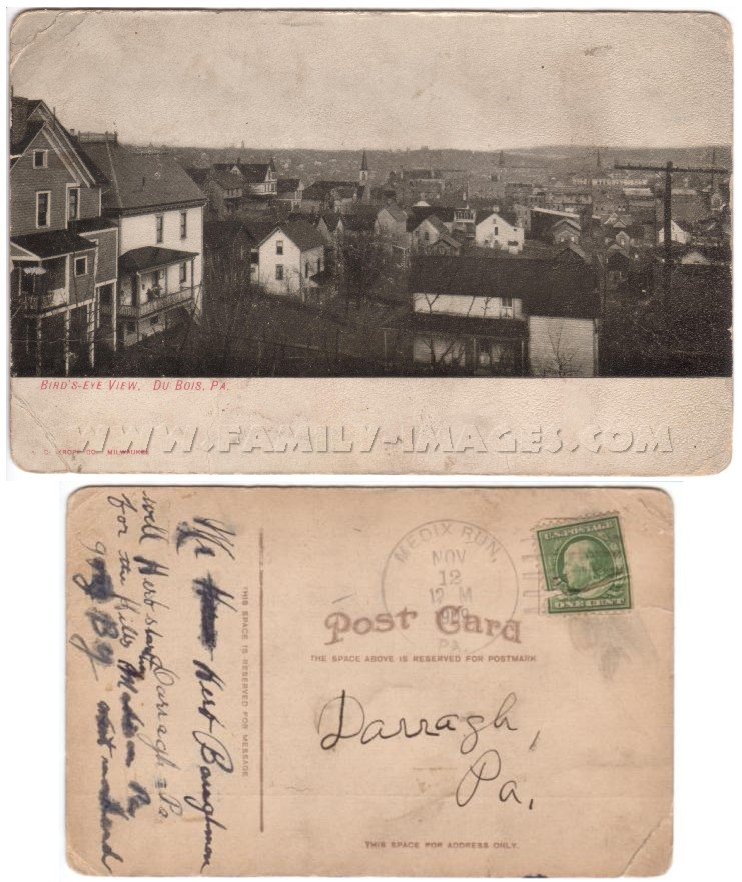 BIRD'S-EYE VIEW, DU BOIS, PA.
CO. MILWAUKEE
WWW.FAMILY-IMAGES.COM
MEDIX RUN,
NOV
12
12 M
PA.
U.S. POSTAGE
ONE CENT
Post Card
THE SPACE ABOVE IS RESERVED FOR POSTMARK
Darragh,
Pa.
THIS SPACE FOR ADDRESS ONLY.
THIS SPACE IS RESERVED FOR MESSAGE
Mr Herb Baughman
Darragh Pa
will Herb start
for the Hills Pa
By